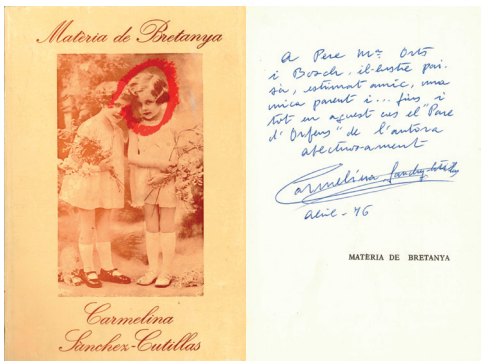 Matèria de Bretanya
Carmelina
Sánchez-Cutillas
A Pere Mª Orts
i Bosch, il·lustre pai-
sà, estimat amic, una
mica parent i... fins i
tot en aquest cas el "Pare
d'Orfens" de l'autora
afectuosament
Carmelina Sanchez-Cutillas
Abril - 76
MATERIA DE BRETANYA